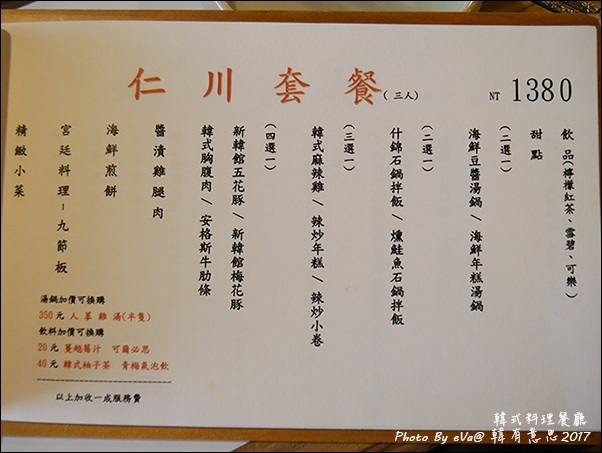 仁川套餐(三人) NT 1380
精緻小菜
宮廷料理-九節板
海鮮煎餅
醬漬雞腿肉
韓式胸腹肉/安格斯牛肋條
新韓館五花豚/新韓館梅花豚
(四選一)
韓式麻辣雞/辣炒年糕/辣炒小卷
(三選一)
什錦石鍋拌飯/燻鮭魚石鍋拌飯
(二選一)
海鮮豆醬湯鍋/海鮮年糕湯鍋
(二選一)
甜點
飲品(檸檬紅茶、雪碧、可樂)
湯鍋加價可換購
350元 人蔘雞湯(半隻)
飲料加價可換購
20元 蔓越莓汁 可爾必思
40元 韓式柚子茶 青梅氣泡飲
以上加收一成服務費
韓式料理餐廳
Photo By eVa@ 韓有意思 2017